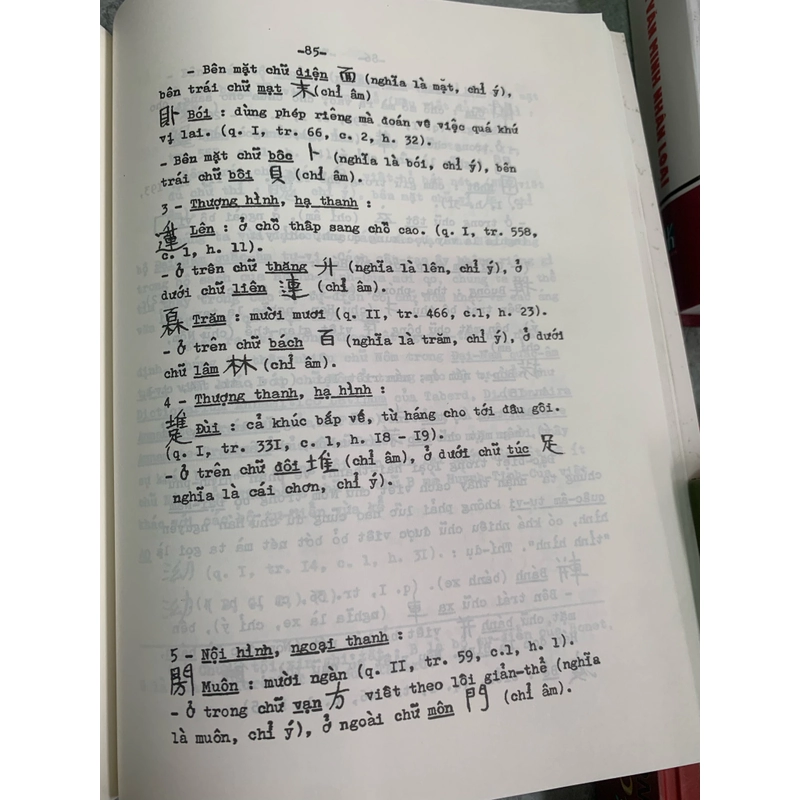 -85-
- Bên mặt chữ diện 面 (nghĩa là mặt, chỉ ý),
bên trái chữ mạt 末 (chỉ âm)
Bói : dùng phép riêng mà đoán về việc quá khứ
vị lai. (q. I, tr. 66, c. 2, h. 32).
- Bên mặt chữ bốc 卜 (nghĩa là bói, chỉ ý), bên
trái chữ bối 貝 (chỉ âm).
3 - Thượng hình, hạ thanh :
Lên : ở chỗ thấp sang chỗ cao. (q. I, tr. 558,
c. 1, h. 11).
- ở trên chữ thăng 升 (nghĩa là lên, chỉ ý), ở
dưới chữ liên 連 (chỉ âm).
Trăm : mười mươi (q. II, tr. 466, c.1, h. 23).
- ở trên chữ bách 百 (nghĩa là trăm, chỉ ý), ở dưới
chữ lâm 林 (chỉ âm).
4 - Thượng thanh, hạ hình :
Đùi : cả khúc bắp vế, từ háng cho tới đầu gối.
(q. I, tr. 331, c. 1, h. 18 - 19).
- ở trên chữ đôi 堆 (chỉ âm), ở dưới chữ túc 足
nghĩa là cái chơn, chỉ ý).
5 - Nội hình, ngoại thanh :
Muôn : mười ngàn (q. II, tr. 59, c.1, h. 1).
- ở trong chữ vạn 万 viết theo lối giản-thể (nghĩa
là muôn, chỉ ý), ở ngoài chữ môn 門 (chỉ âm).
VĂN MINH NHÂN LOẠI